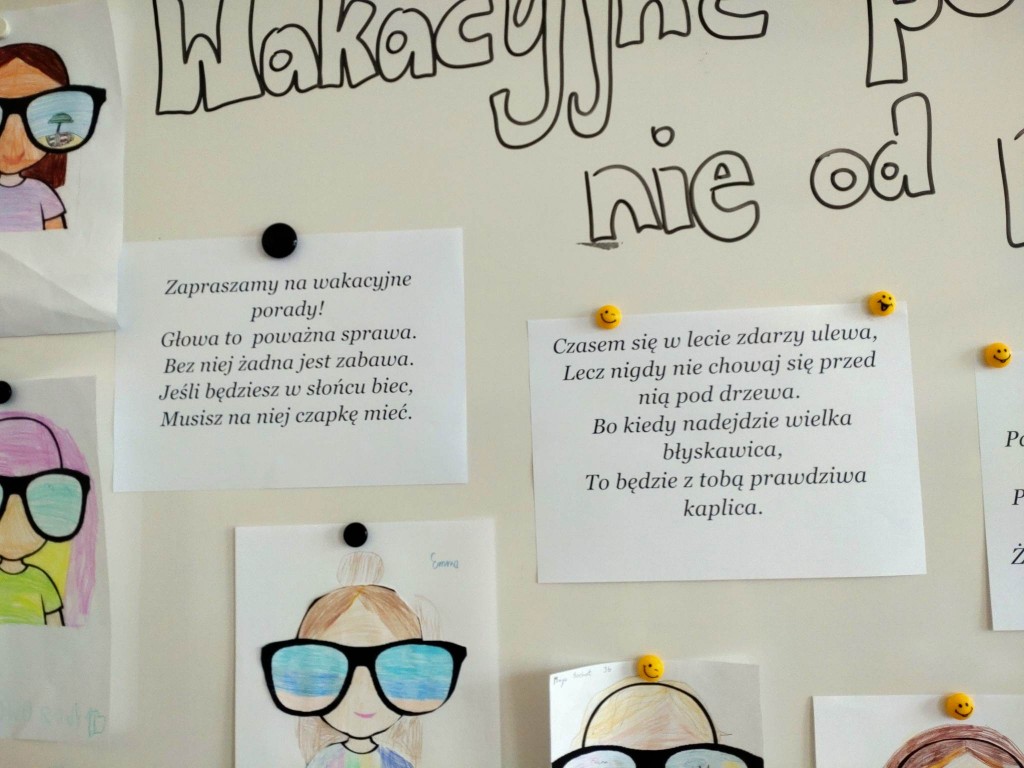 Wakacyjne
nie od
Zapraszamy na wakacyjne
porady!
Głowa to poważna sprawa.
Bez niej żadna jest zabawa.
Jeśli będziesz w słońcu biec,
Musisz na niej czapkę mieć.
Czasem się w lecie zdarzy ulewa,
Lecz nigdy nie chowaj się przed
nią pod drzewa.
Bo kiedy nadejdzie wielka
błyskawica,
To będzie z tobą prawdziwa
kaplica.